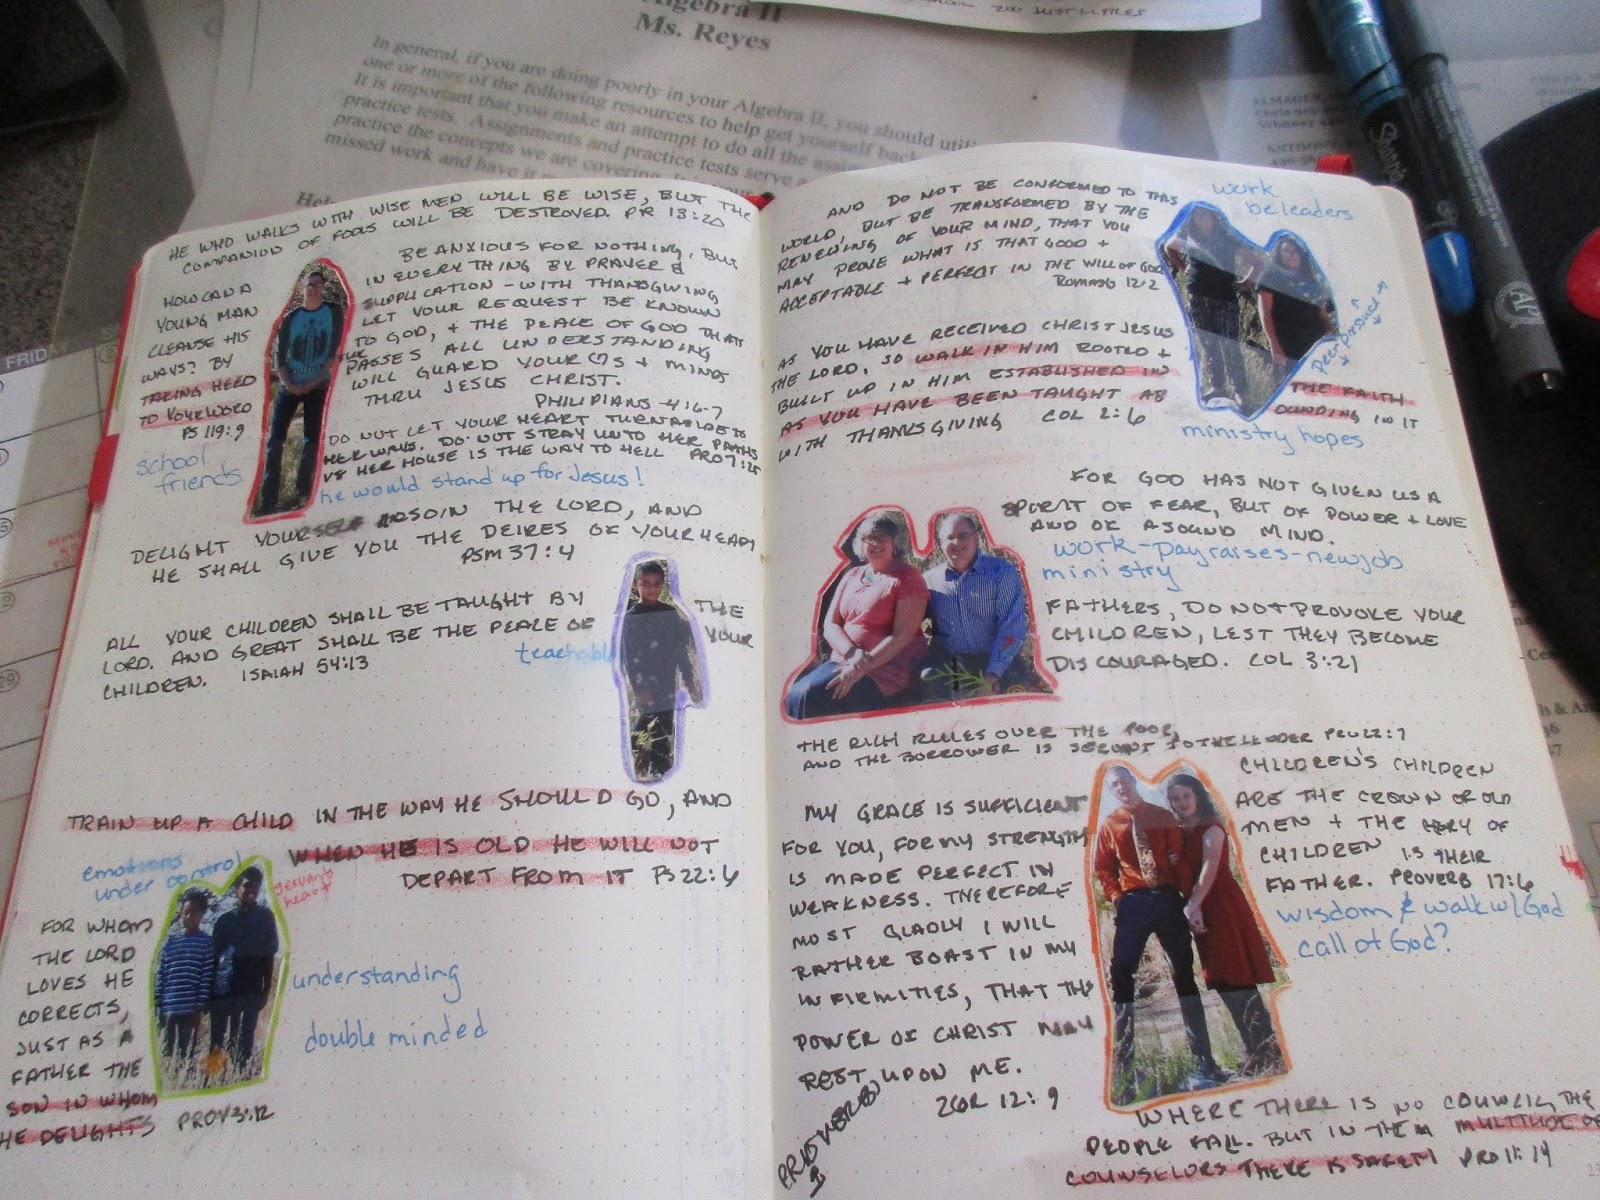 200 JUST LITTLES
Algebra II
Ms. Reyes
In general, if you are doing poorly in your Algebra II, you should
one or more of the following resources to help get yourself back
It is important that you make an attempt to do all the
practice tests. Assignments and practice tests serve
practice the concepts we are covering.
missed work and have it
HE WHO WALKS WITH WISE MEN WILL BE WISE, BUT THE
COMPANION OF FOOLS WILL BE DESTROYED. PR 13:20
HOW CAN A
YOUNG MAN
CLEANSE HIS
WAYS? BY
TAKING HEED
TO YOUR WORD
PS 119:9
school
friends
BE ANXIOUS FOR NOTHING, BUT
IN EVERY THING BY PRAYER &
SUPPLICATION - WITH THANGIVING
LET YOUR REQUEST BE KNOWN
TO GOD, + THE PEACE OF GOD THAT
PASSES ALL UNDERSTANDING
WILL GUARD YOUR ♡S + MINDS
THRU JESUS CHRIST.
PHILIPIANS -4:6-7
DO NOT LET YOUR HEART TURN ASIDE TO
HER WAYS. DO NOT STRAY UNTO HER PATHS
HER HOUSE IS THE WAY TO HELL PRO 7:25
he would stand up for Jesus!
DELIGHT YOURSELF ALSO IN THE LORD, AND
HE SHALL GIVE YOU THE DEIRES OF YOUR HEART
PSM 37:4
ALL YOUR CHILDREN SHALL BE TAUGHT BY THE
LORD. AND GREAT SHALL BE THE PEACE OF YOUR
CHILDREN. ISAIAH 54:13
teachable
TRAIN UP A CHILD IN THE WAY HE SHOULD GO, AND
WHEN HE IS OLD HE WILL NOT
DEPART FROM IT PS 22:6
emotions
under control
servant's
heart
FOR WHOM
THE LORD
LOVES HE
CORRECTS,
JUST AS A
FATHER THE
SON IN WHOM
HE DELIGHTS PROV 3:12
understanding
double minded
AND DO NOT BE CONFORMED TO THIS
WORLD, BUT BE TRANSFORMED BY THE
RENEWING OF YOUR MIND, THAT YOU
MAY PROVE WHAT IS THAT GOOD +
ACCEPTABLE + PERFECT IN THE WILL OF GOD
ROMANS 12:2
work
be leaders
peer pressure
AS YOU HAVE RECEIVED CHRIST JESUS
THE LORD, SO WALK IN HIM ROOTED +
BUILT UP IN HIM ESTABLISHED IN THE FAITH
AS YOU HAVE BEEN TAUGHT AB OUNDING IN IT
WITH THANKSGIVING COL 2:6
ministry hopes
FOR GOD HAS NOT GIVEN US A
SPIRIT OF FEAR, BUT OF POWER + LOVE
AND OF A SOUND MIND.
work-pay raises-new job
ministry
FATHERS, DO NOT PROVOKE YOUR
CHILDREN, LEST THEY BECOME
DISCOURAGED. COL 3:21
THE RICH RULES OVER THE POOR,
AND THE BORROWER IS SERVANT TO THE LEADER PRO 22:7
MY GRACE IS SUFFICIENT
FOR YOU, FOR MY STRENGTH
IS MADE PERFECT IN
WEAKNESS. THEREFORE
MOST GLADLY I WILL
RATHER BOAST IN MY
INFIRMITIES, THAT THE
POWER OF CHRIST MAY
REST UPON ME.
2COR 12:9
CHILDREN'S CHILDREN
ARE THE CROWN OF OLD
MEN + THE GLORY OF
CHILDREN IS THEIR
FATHER. PROVERB 17:6
wisdom & walk w/God
call of God?
WHERE THERE IS NO COUNCIL, THE
PEOPLE FALL. BUT IN THEM MULTITUDE OF
COUNSELORS THERE IS SAFETY PRO 11:14
Sharpie
FRID